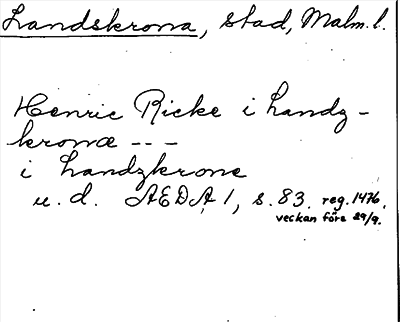 Landskrona, stad, Malm. l.
Henric Ricke i Landz-
kronæ ---
i Landzkrone
u. d. AEDA 1, s. 83. reg. 1476,
veckan före 29/9.